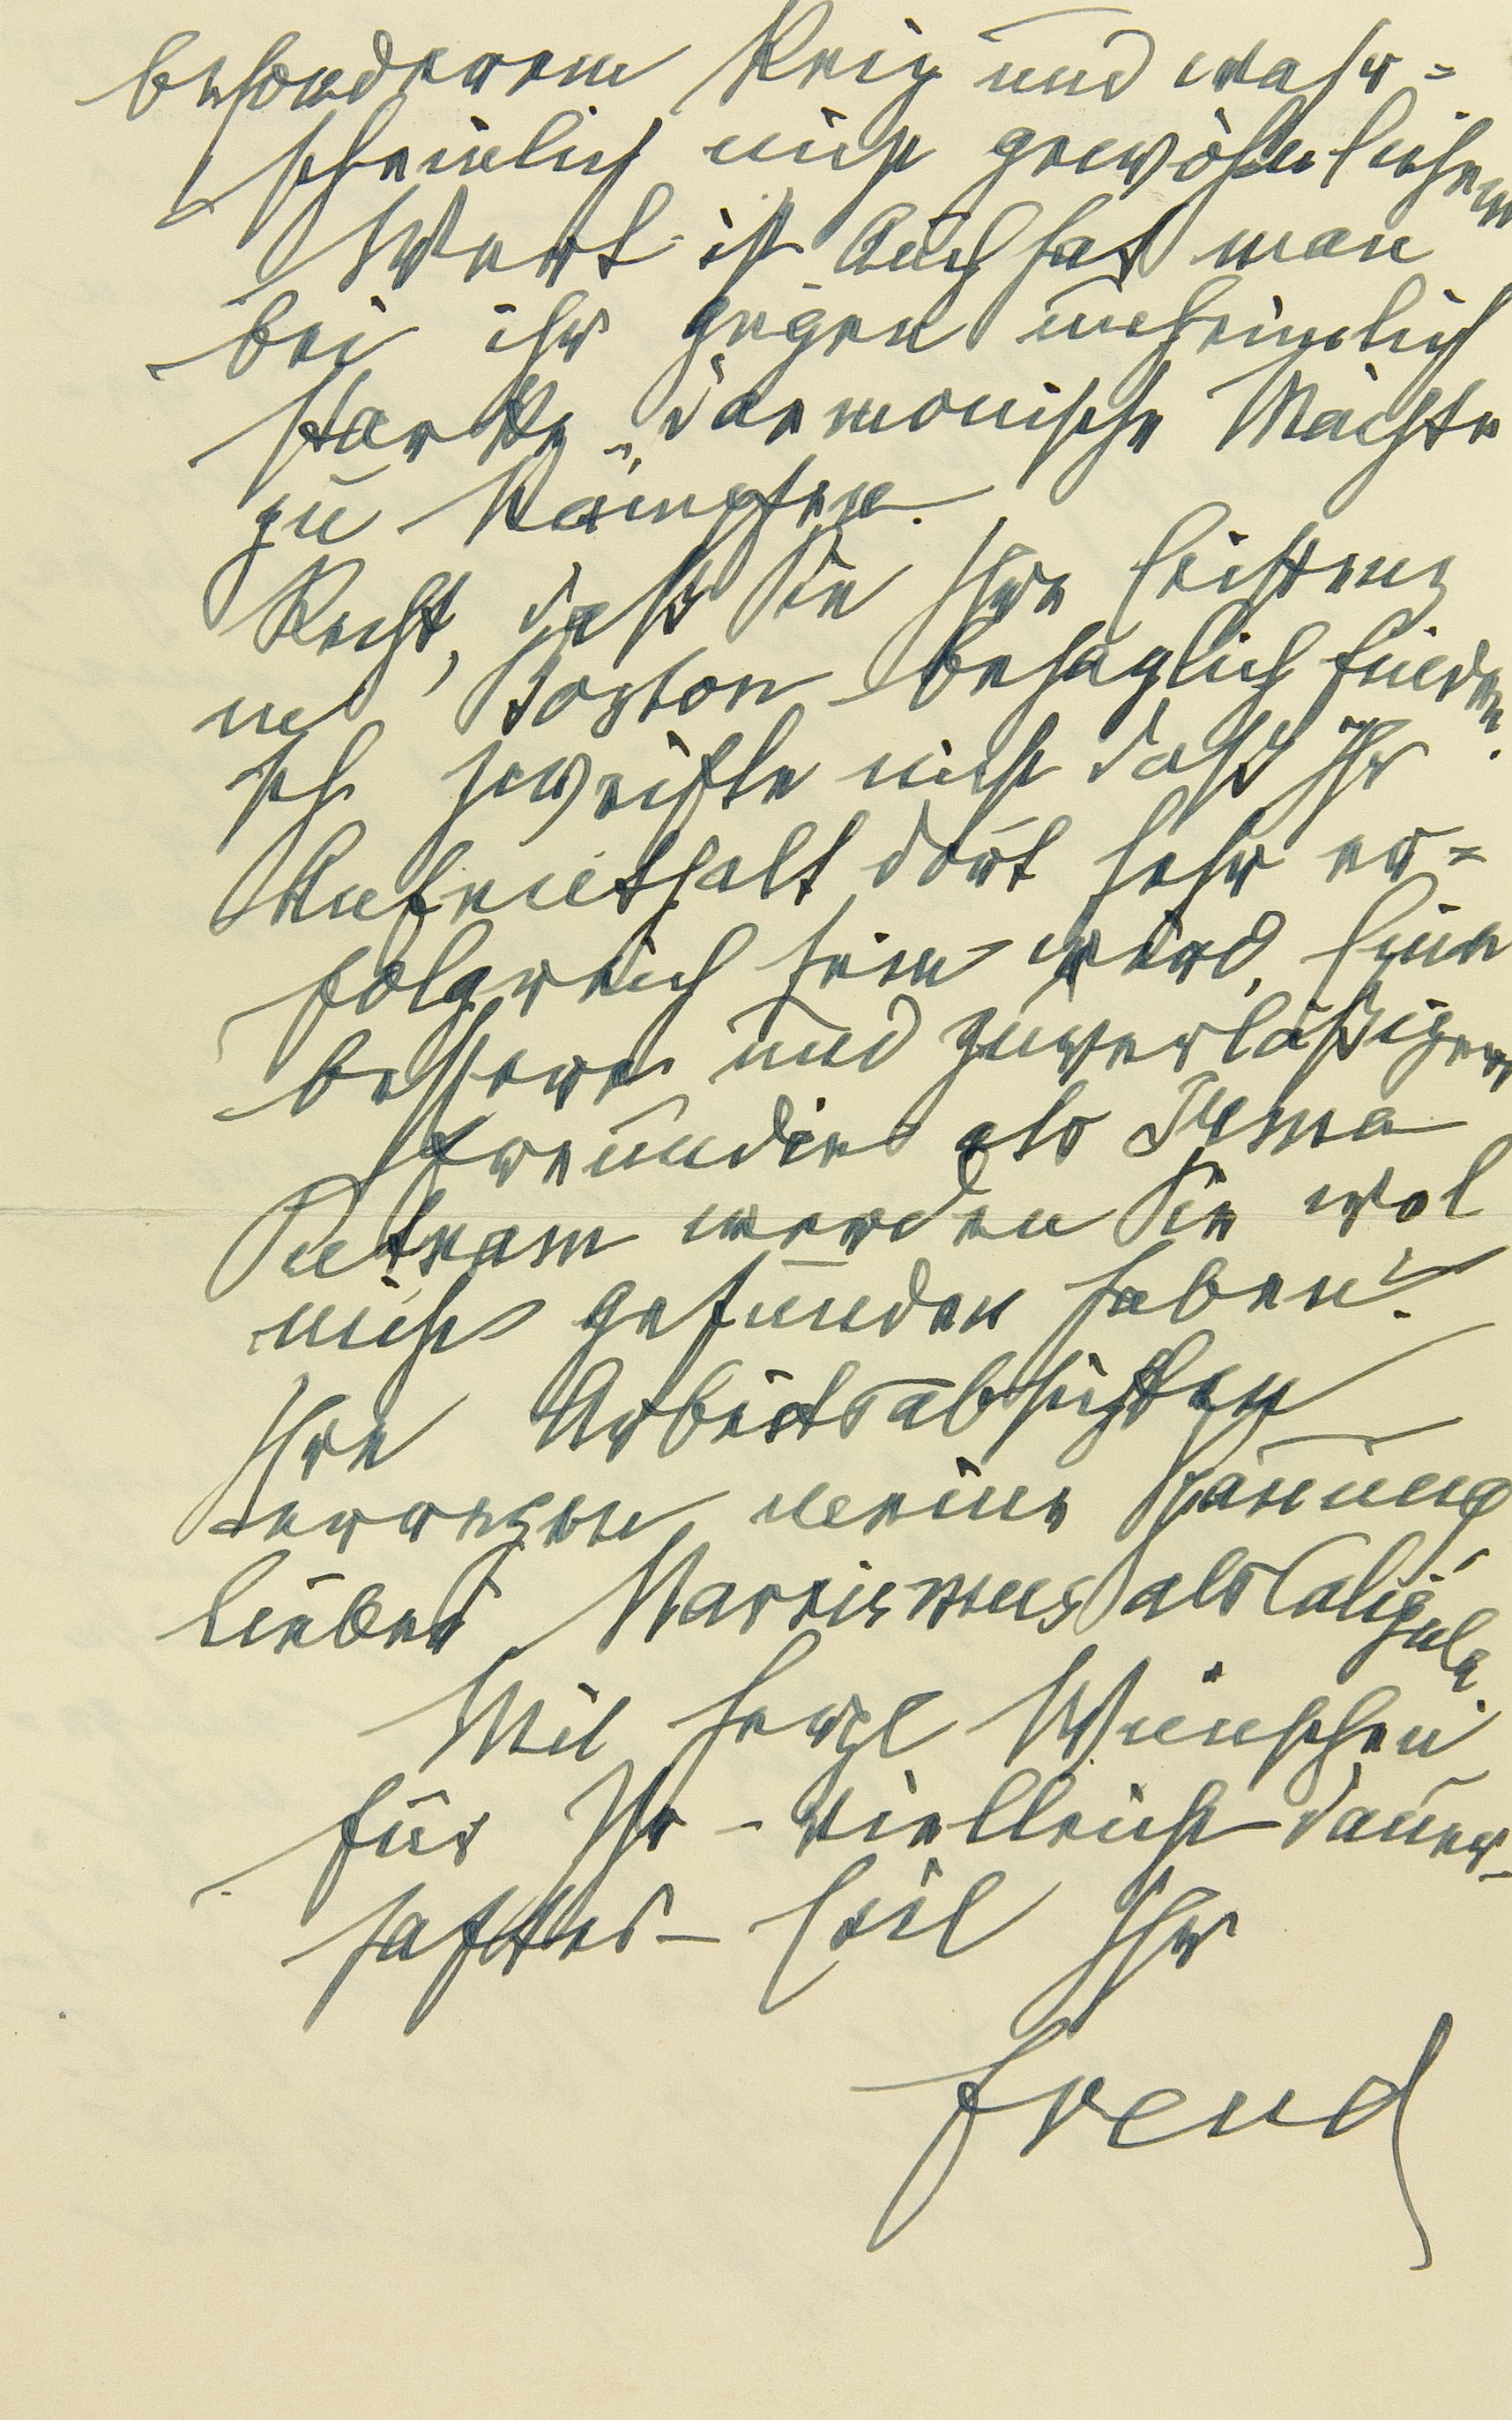 besonderem Reiz und wahr=
scheinlich nicht gewöhnlichem
Wert ist. Auch hat man
bei ihr gegen unheimlich
starke, daemonische Mächte
zu kämpfen.
Recht, daß Sie Ihre Existenz
in Boston behaglich finden.
Ich zweifle nicht daß Ihr
Aufenthalt dort sehr er=
folgreich sein wird. Eine
bessere und zuverläßigere
Freundin als Irma
Putnam werden Sie wol
nicht gefunden haben?
Ihre Arbeitsabsichten
erregen meine Spannung,
lieber Narzissmus als Caligula.
Mit herzl Wünschen
für Ihr – vielleicht dauer-
haftes – Exil Ihr
Freud